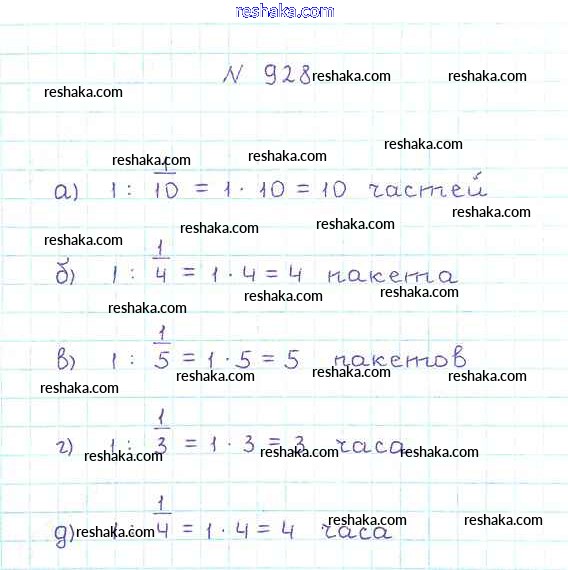 reshaka.com
N 928 reshaka.com reshaka.com
reshaka.com
reshaka.com
reshaka.com reshaka.com
а) 1 : 1/10 = 1 · 10 = 10 частей
reshaka.com reshaka.com reshaka.com
б) 1 : 1/4 = 1 · 4 = 4 пакета
reshaka.com reshaka.com reshaka.com
в) 1 : 1/5 = 1 · 5 = 5 пакетов
reshaka.com reshaka.com reshaka.com reshaka.com
г) 1 : 1/3 = 1 · 3 = 3 часа
reshaka.com reshaka.com reshaka.com
д) 1 : 1/4 = 1 · 4 = 4 часа
reshaka.com reshaka.com reshaka.com